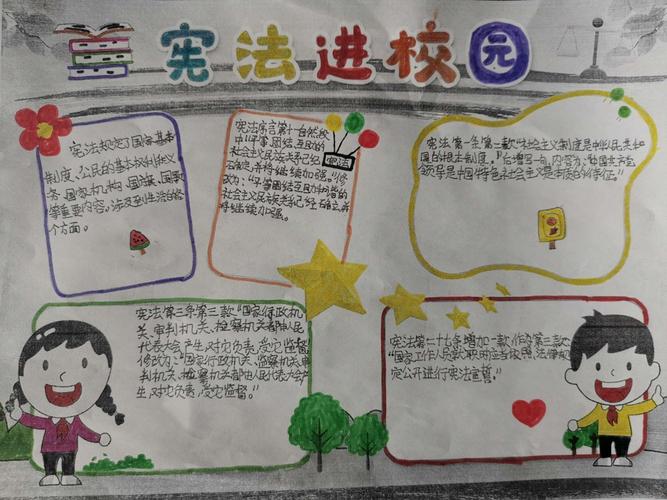 宪法进校园
宪法规定了国家基本
制度、公民的基本权利和义
务、国家机构、国旗、国歌
等重要内容,涉及到生活的各
个方面。
宪法序言第十一自然段
中"平等、团结、互助的
社会主义民族关系已经
确立,并将继续加强。"修
改为:"平等团结互助和谐的
社会主义民族关系已经确立,并
将继续加强。
宪法
宪法第一条第二款"社会主义制度是中华人民共和
国的根本制度。"后增写一句,内容为:"中国共产党
领导是中国特色社会主义最本质的特征。"
宪法第三条第三款"国家行政机
关、审判机关、检察机关都由人民
代表大会产生,对它负责,受它监督"
修改为:"国家行政机关、监察机关、审
判机关、检察机关都由人民代表大会产
生,对它负责、受它监督。"
宪法第二十七条增加一款,作为第三款:
"国家工作人员就职时应当依照法律规
定公开进行宪法宣誓。"